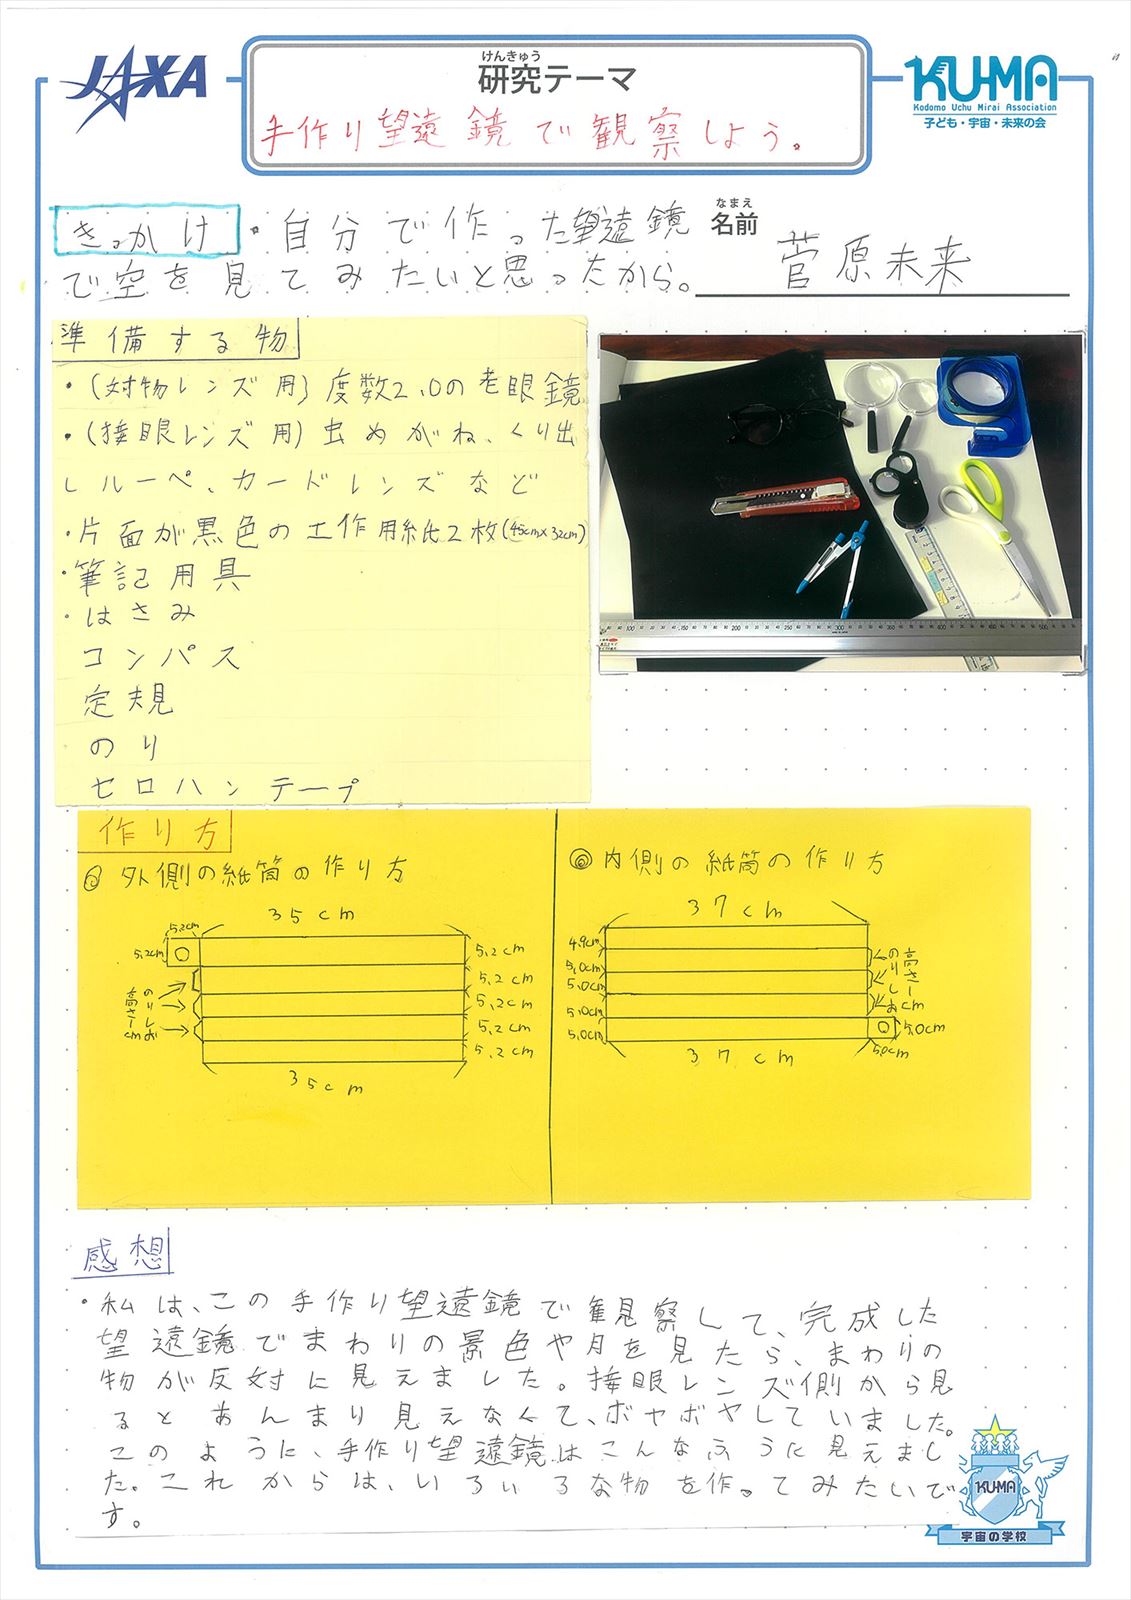 JAXA
けんきゅう
研究テーマ
手作り望遠鏡で観察しよう。
KU-MA
Kodomo Uchu Mirai Association
子ども・宇宙・未来の会
きっかけ・自分で作った望遠鏡
で空を見てみたいと思ったから。
なまえ
名前
菅原未来
準備する物
・(対物レンズ用)度数2.0の老眼鏡
・(接眼レンズ用)虫めがね、くり出
しルーペ、カードレンズなど
・片面が黒色の工作用紙2枚(45cm×32cm)
・筆記用具
・はさみ
コンパス
定規
のり
セロハンテープ
作り方
◎外側の紙筒の作り方
35cm
5.2cm
5.2cm
5.2cm
5.2cm
5.2cm
5.2cm
5.2cm
のりしろ
高さ1cm
35cm
◎内側の紙筒の作り方
37cm
4.9cm
5.0cm
5.0cm
5.0cm
5.0cm
のりしろ
高さ1cm
5.0cm
5.0cm
37cm
感想
・私は、この手作り望遠鏡で観察して、完成した
望遠鏡でまわりの景色や月を見たら、まわりの
物が反対に見えました。接眼レンズ側から見
るとあんまり見えなくて、ボヤボヤしていました。
このように、手作り望遠鏡はこんなふうに見えまし
た。これからは、いろいろな物を作ってみたいで
す。
KUMA
宇宙の学校